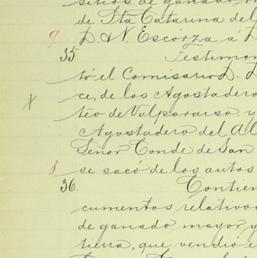 sitios de ganado
de Sta Catarina del
9 D. N. Escorza a
35. Testimon
tó el Comisario D. D
ce, de los Agostadero
teo de Valparaiso, y
Agostadero del Al
Señor Conde de San
8 se sacó de los autos
36. Contien
cumentos relativos
de ganado mayor y
tierra, que vendió e